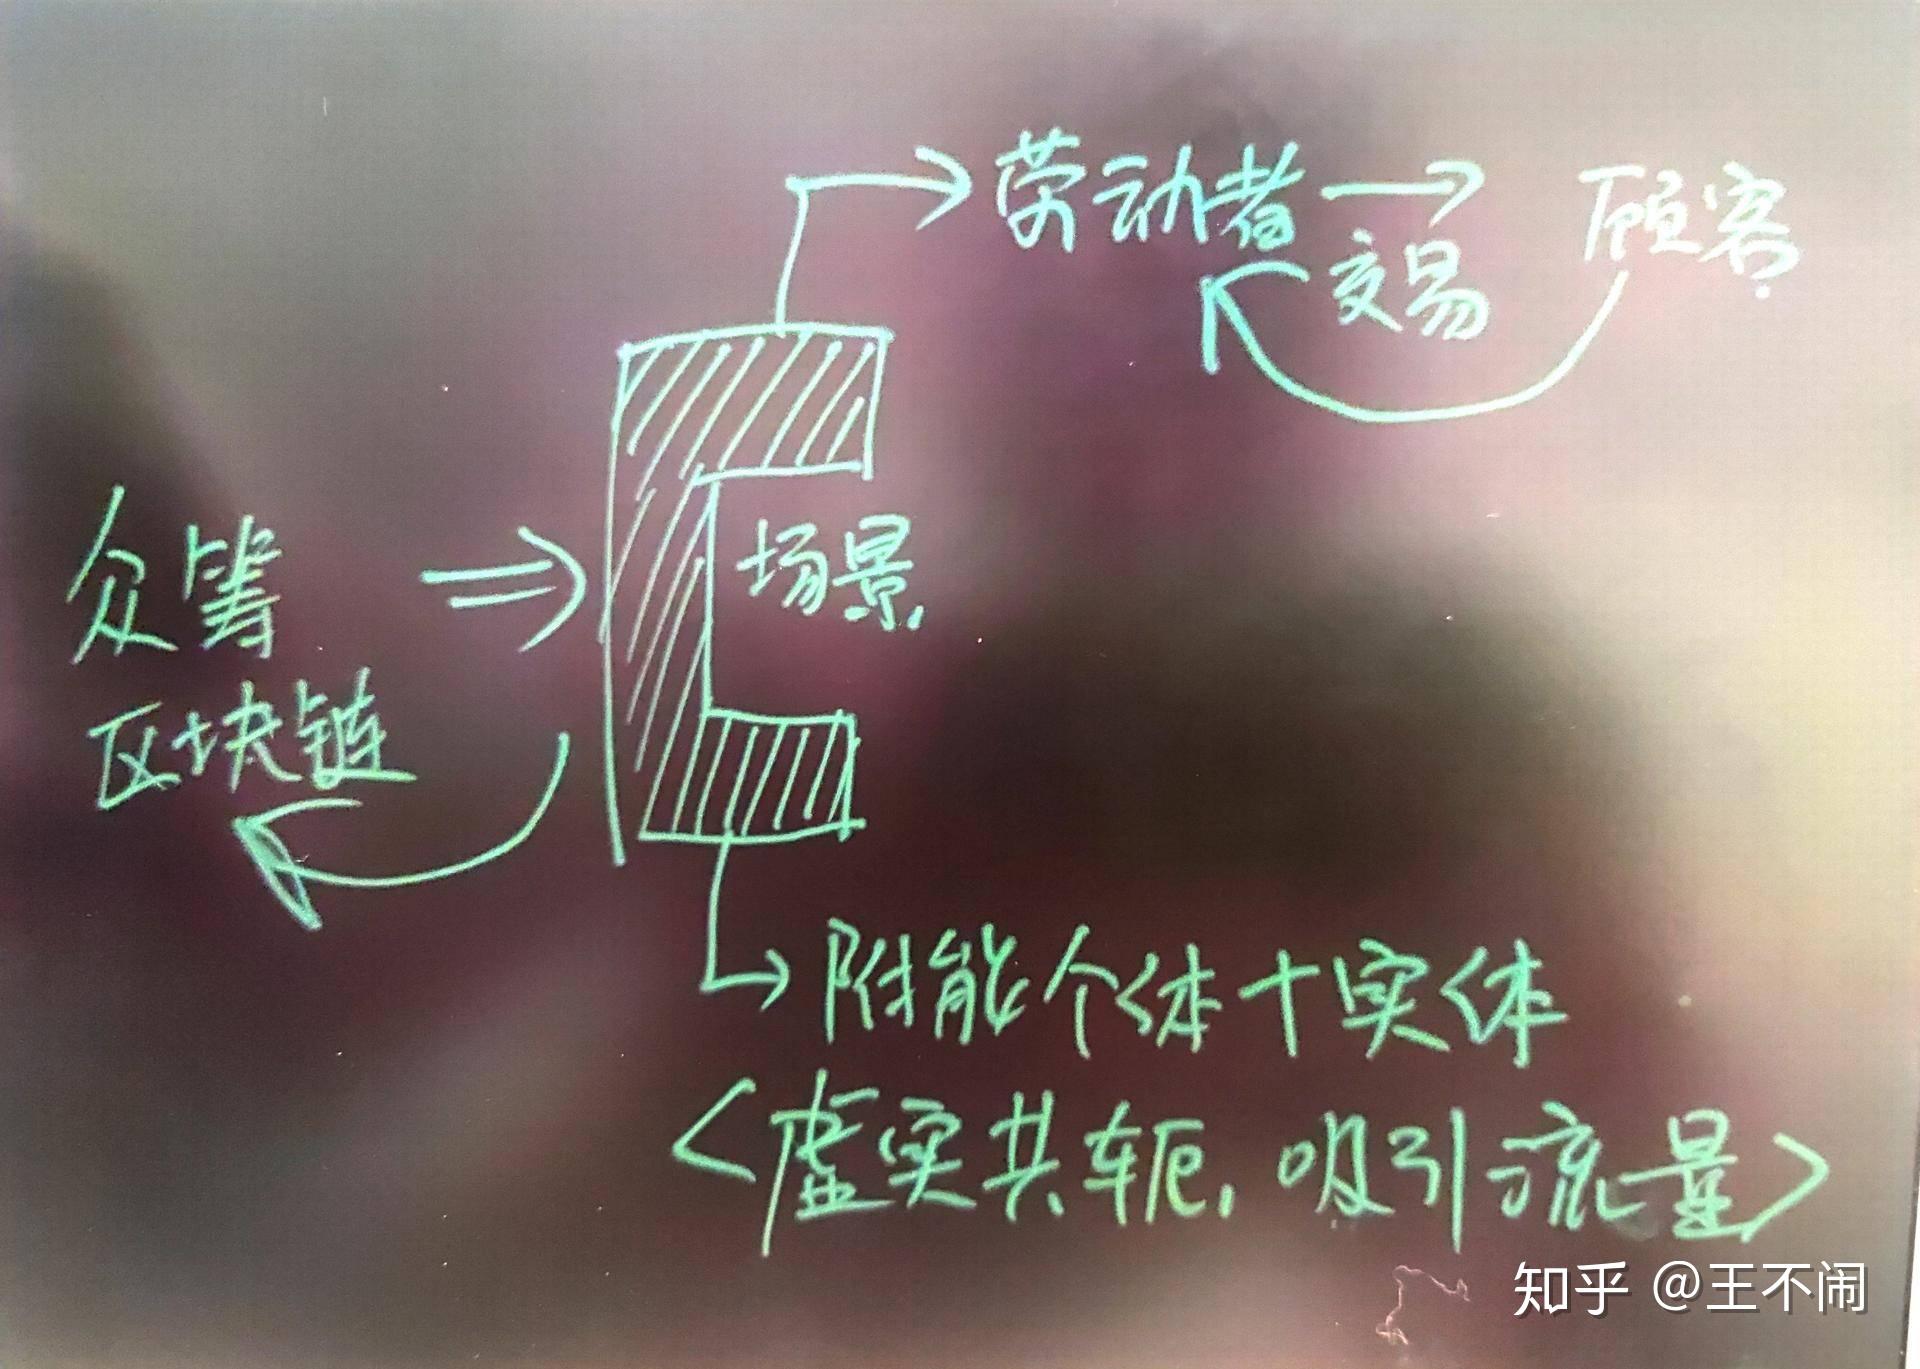 劳动者 → 顾客
交易
场景
众筹
区块链
附能个体+实体
<虚实共轭,吸引流量>
知乎 @王不闹